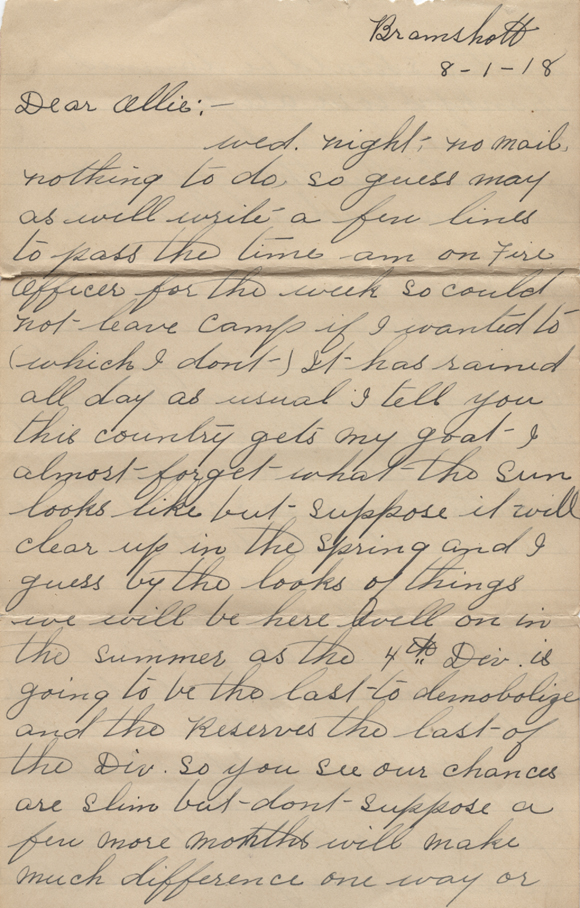 Bramshott
8-1-18
Dear Ellie:-
wed. night, no mail,
nothing to do, so guess may
as will write a few lines
to pass the time am on Fire
Officer for the week so could
not leave camp if I wanted to
(which I dont) It has rained
all day as usual I tell you
this country gets my goat I
almost forget what the sun
looks like but suppose it will
clear up in the spring and I
guess by the looks of things
we will be here well on in
the summer as the 4th Div. is
going to be the last to demobolize
and the Reserves the last of
the Div. so you see our chances
are slim but dont suppose a
few more months will make
much difference one way or